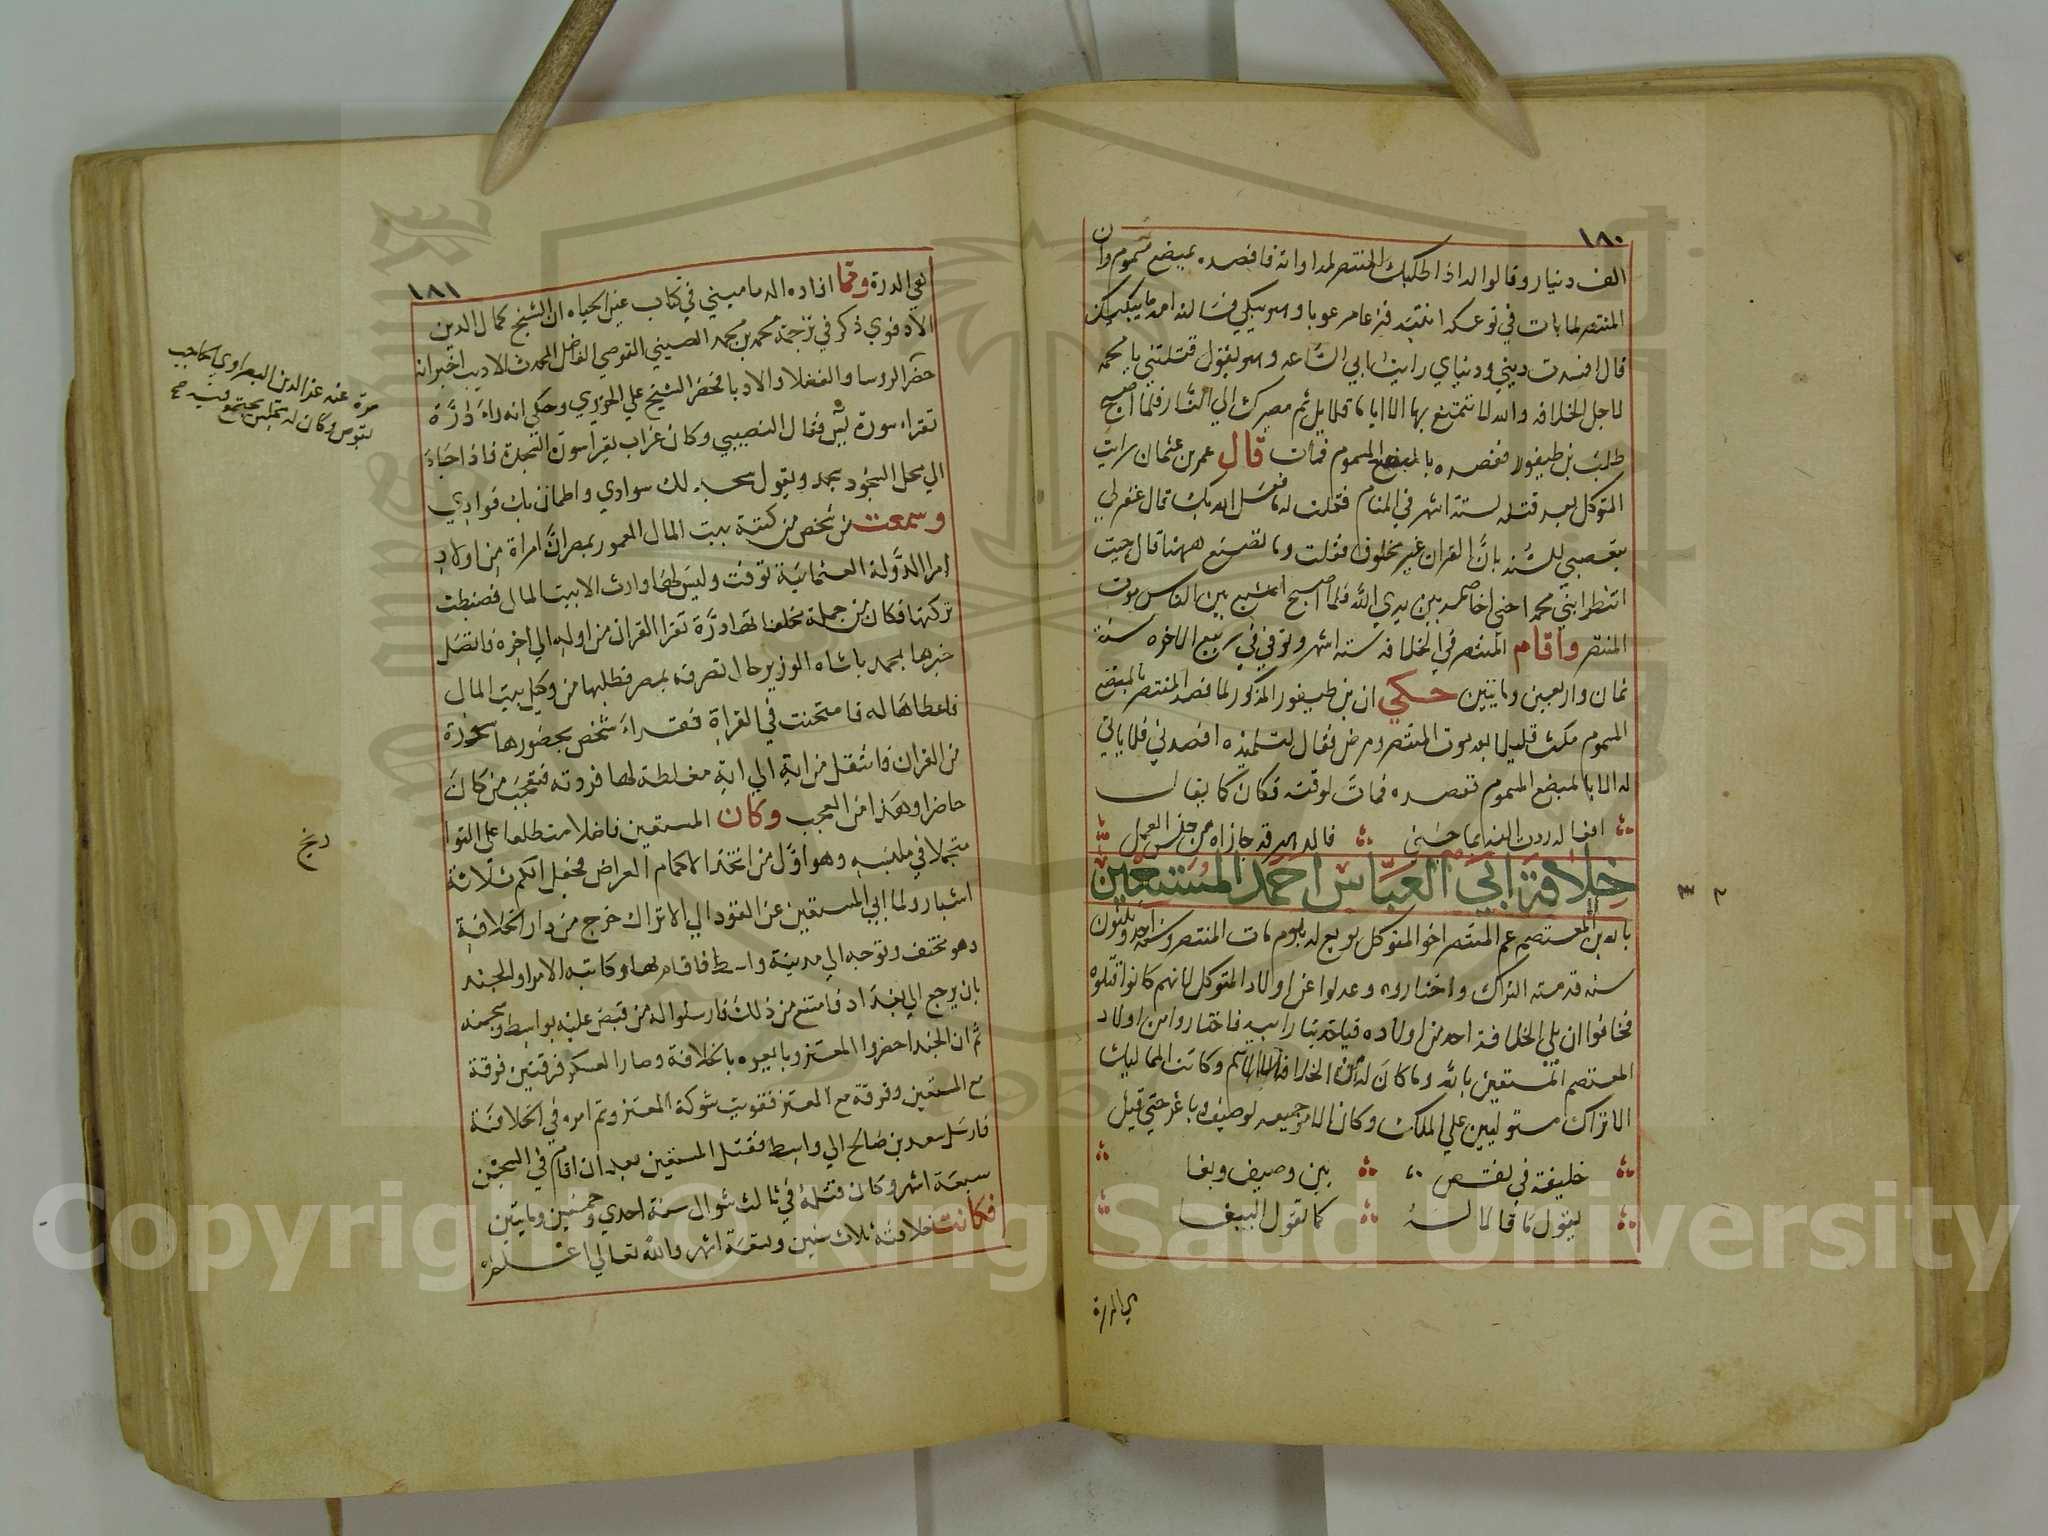 ١٨٠
الف دنيار وقالوا له اذا طلبك المنتصر لمداواته فافصده بمبضع مسموم وان
المنتصر لما بات في توعكه انتبه فزعا مرعوبا وهو يبكي فسالته امه ما يبكيك
قال افسدت ديني ودنياي رايت ابي الساعه وهو يقول قتلتني يا محمد
لاجل الخلافه والله لا تتمتع بها الا اياما قلايل ثم مصيرك الي النار فلما اصبح
طلب بن طيفور ففصده بالمبضع المسموم فمات قال عمر بن عثمان رايت
المتوكل بعد قتله لستة اشهر في المنام فقلت له ما فعل الله بك قال غفر لي
بتعصبي للسنه بان القران غير مخلوق فقلت وما تصنع ههنا قال جيت
انتظر ابني محمد اخي اخاصمه بين يدي الله فلما اصبح اشيع بين الناس موت
المنتصر واقام المنتصر في الخلافه سته اشهر وتوفي في ربيع الاخره سنة
ثمان واربعين وماتين حكي ان بن طيفور المذكور لما فصد المنتصر بالمبضع
المسموم مكث قليلا بعد موت المنتصر ومرض فقال لتلميذه افصدني فلم ياتي
له الا بالمبضع المسموم ففصده فمات لوقته فكان كما يقال
افعاله ردت اليه ايما حسني فالله قد جازاه من جنس العمل
خلافة ابي العباس احمد المستعين
بالله بن المعتصم عم المنتصر اخو المتوكل بويع له يوم مات المنتصر وسنه احد وثلثون
سنه قدمته التراك واختاروه وعدلوا عن اولاد المتوكل لانهم كانوا قتلوه
فخافوا ان يلي الخلافة احد من اولاده فياخذ بثار ابيه فاختاروا من اولاد
المعتصم المستعين بالله وما كان له من الخلافة الا الاسم وكانت المماليك
الاتراك مستوليين علي الملك وكان الامر جميعه لوصيف وباغر حتي قيل
خليفة في قفص بين وصيف وبغا
يقول ما قالا له كما تقول الببغا
في الدرة
١٨١
في الدرة ومما افاده الدماميني في كتاب عين الحياه ان الشيخ كمال الدين
الادفوي ذكر في ترجمة محمد بن محمد النصيبي القوصي الفاضل المحدث الاديب اخبر انه
حضر الروسا والفضلا والادبا فحضر الشيخ علي الحريري وحكي انه راي درة
تقراء سورة يس فقال النصيبي وكان غراب يقرا سورة السجدة فاذا جاء
الي محل السجود سجد ويقول سجد لك سوادي واطمان بك فوادي
وسمعت من شخص من كتبة بيت المال المعمور بمصر ان امراة من اولاد
امرا الدولة العثمانية توفت وليس لها وارث الا بيت المال فضبطت
تركتها فكان من جملة مخلفاتها درة تقرا القران من اوله الي اخره فاتصل
خبرها بمحمد باشاه الوزير حال تصرفه بمصر فطلبها من وكيل بيت المال
فاعطاها له فامتحنت في القراة فقراء شخص بحضورها سورة
من القران فانتقل من اية الي اية مغلطة لها فردته فتعجب من كان
حاضرا وهذا من العجب وكان المستعين فاضلا متطلعا علي التوا
متجملا في ملبسه وهو اول من اتخذ الاكمام العراض فجعل الكم ثلاثة
اشبار ولما ابي المستعين عن العود الي الاتراك خرج من دار الخلافة
وهو مختف وتوجه الي مدينة واسط فاقام بها وكاتبه الامرا والجند
بان يرجع الي بغداد فامتنع من ذلك فارسلوا له من قبض عليه بواسط وسجنه
ثم ان الجند احضروا المعتز وبايعوه بالخلافة وصار العسكر فرقتين فرقة
مع المستعين وفرقة مع المعتز فقويت شوكة المعتز وتم امره في الخلافة
فارسل سعد بن صالح الي واسط فقتل المستعين بعد ان اقام في السجن
سبعة اشهر وكان قتله في ثالث شوال سنة احدي وخمسين وماتين
فكانت خلافته ثلاث سنين وتسعة اشهر والله تعالي اعلم
مرة عند عز الدين البصراوي الحاجب
بقوص وكان له مجلس يجتمع فيه صح
ريخ
Copyright © King Saud University
1957